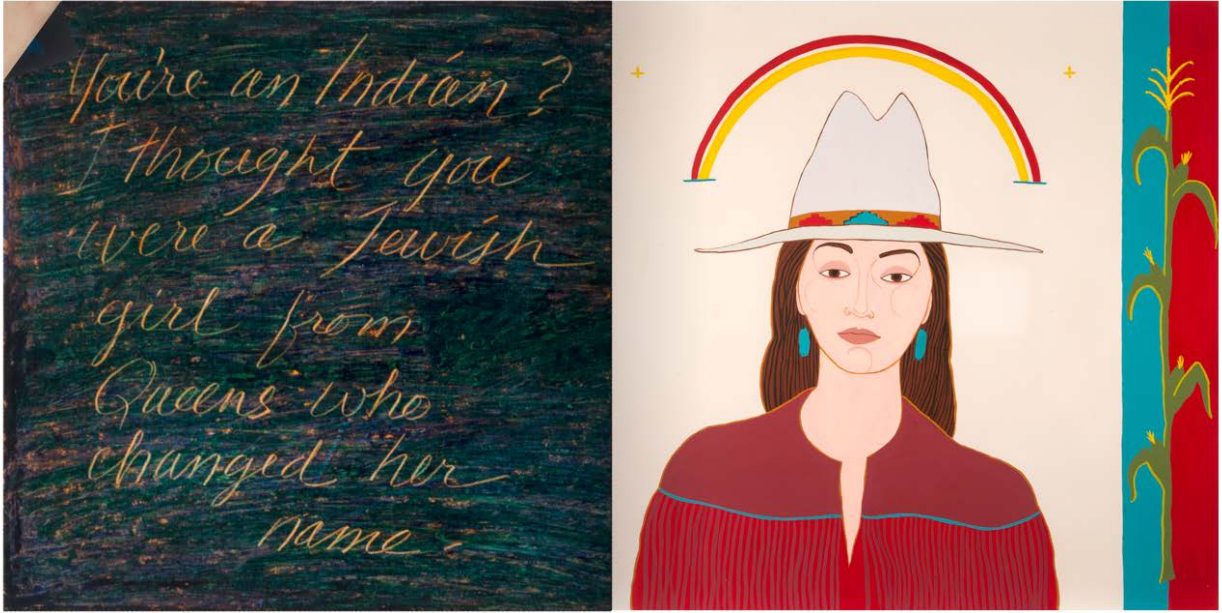 You're an Indian?
I thought you
were a Jewish
girl from
Queens who
changed her
name.